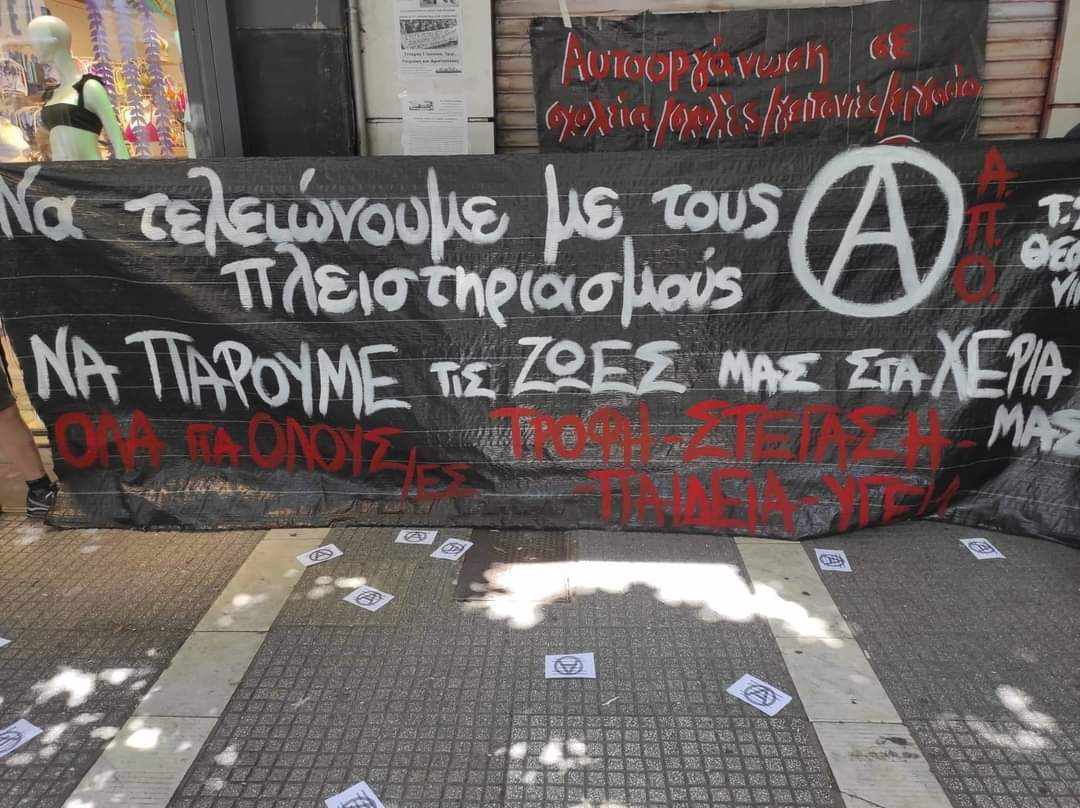 Αυτοοργάνωση σε
σχολεία/σχολές/γειτονιές/εργασία
Να τελειώνουμε με τους
πλειστηριασμούς
Α.
Π.
Ο.
ΝΑ ΠΑΡΟΥΜΕ ΤΙΣ ΖΩΕΣ ΜΑΣ ΣΤΑ ΧΕΡΙΑ
ΜΑΣ
ΟΛΑ ΓΙΑ ΟΛΟΥΣ/ΕΣ
ΤΡΟΦΗ-ΣΤΕΓΑΣΗ-
-ΠΑΙΔΕΙΑ-ΥΓΕΙΑ